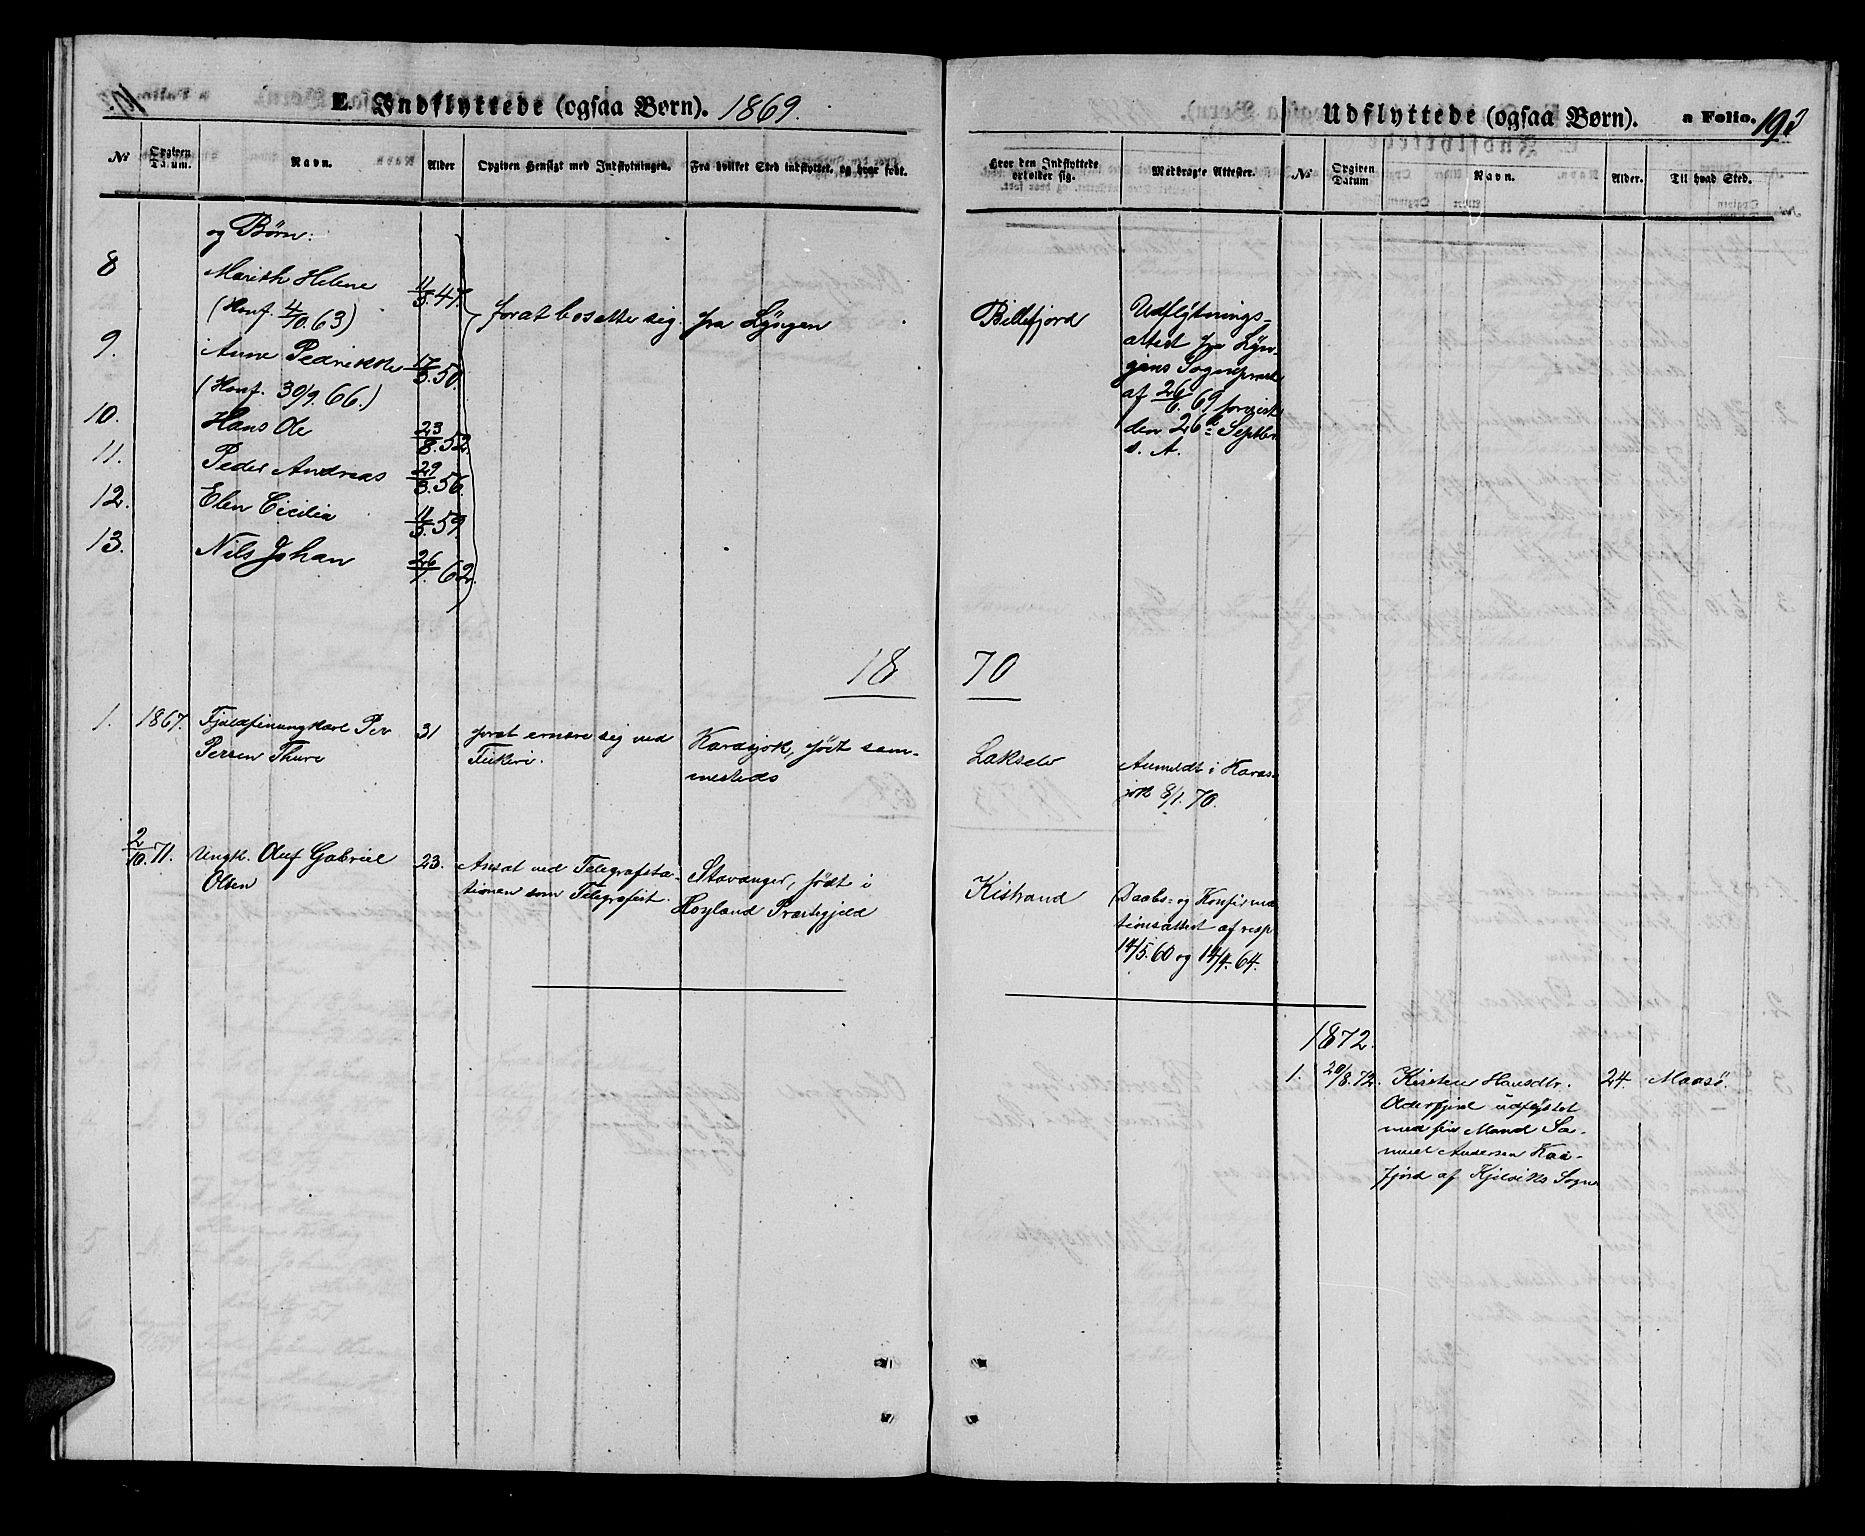 E. Indflyttede (ogsaa Børn). 1869.
Udflyttede (ogsaa Børn). a Folio. 193
№ Opgiven Datum. Navn. Alder Opgiven Hensigt med Indflytningen. Fra hvilket Sted indflyttet, og hvor født.
Hvor den Indflyttede opholder sig. Medbragte Attester. № Opgiven Datum Navn. Alder. Til hvad Sted.
og Børn:
8 Marith Helene 11/3.47.
(Konf. 4/10.63) forat bosætte sig. fra Lyngen
9. Anne Pedrikke 17/3.50.
(Konf. 30/9.66.)
10. Hans Ole 23/8.52.
11. Peder Andreas 29/3.56.
12. Elen Cicilia 11/3.59.
13. Nils Johan 26/7.62.
Billefjord Udflytnings-
attest fra Lyn-
gens Sognepræst
af 26/6.69,
den 26de Septbr.
s. A.
18 70
1. 1867. Fjeldfinungkarl Per 31 forat ernære sig ved Karasjok, født sam-
Persen Thuri Fiskeri. mesteds
Lakselv Anmeldt i Karas-
jok 8/1.70.
2/10.71. Ungk. Oluf Gabriel 23. Ansat ved Telegrafsta- Stavanger, født i
Olsen tionen som Telegrafist. Høyland Præstegjeld
Kistrand Daabs- og Konfirma
tionsattest af resp
14/5.60 og 14/4.64.
1872.
1. 20/8.72. Kirsten Hansdtr. 24. Maasø.
Olderfjord udflyttet
med sin Mand Sa-
muel Andersen Kaa-
fjord af Kjelviks Sogn